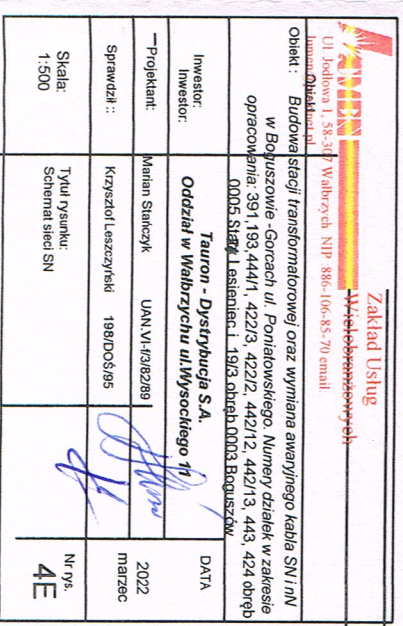 LUMEN
Zakład Usług
Wielobranżowych
Ul. Jodłowa 1, 58-307 Wałbrzych NIP 886-106-85-70 email.
Obiekt : Budowa stacji transformatorowej oraz wymiana awaryjnego kabla SN i nN
w Boguszowie -Gorcach ul. Poniatowskiego. Numery działek w zakresie
opracowania: 391,193,444/1, 422/3, 422/2, 442/12, 442/13, 443, 424 obręb
0005 Stary Lesieniec i 19/3 obręb 0003 Boguszów
Inwestor:
Inwestor:
Tauron - Dystrybucja S.A.
Oddział w Wałbrzychu ul.Wysockiego 11
DATA
Projektant:
Marian Stańczyk UAN.VI-f/3/82/89
2022
marzec
Sprawdził ::
Krzysztof Leszczyński 198/DOŚ/95
Skala:
1:500
Tytuł rysunku:
Schemat sieci SN
Nr rys.
4E